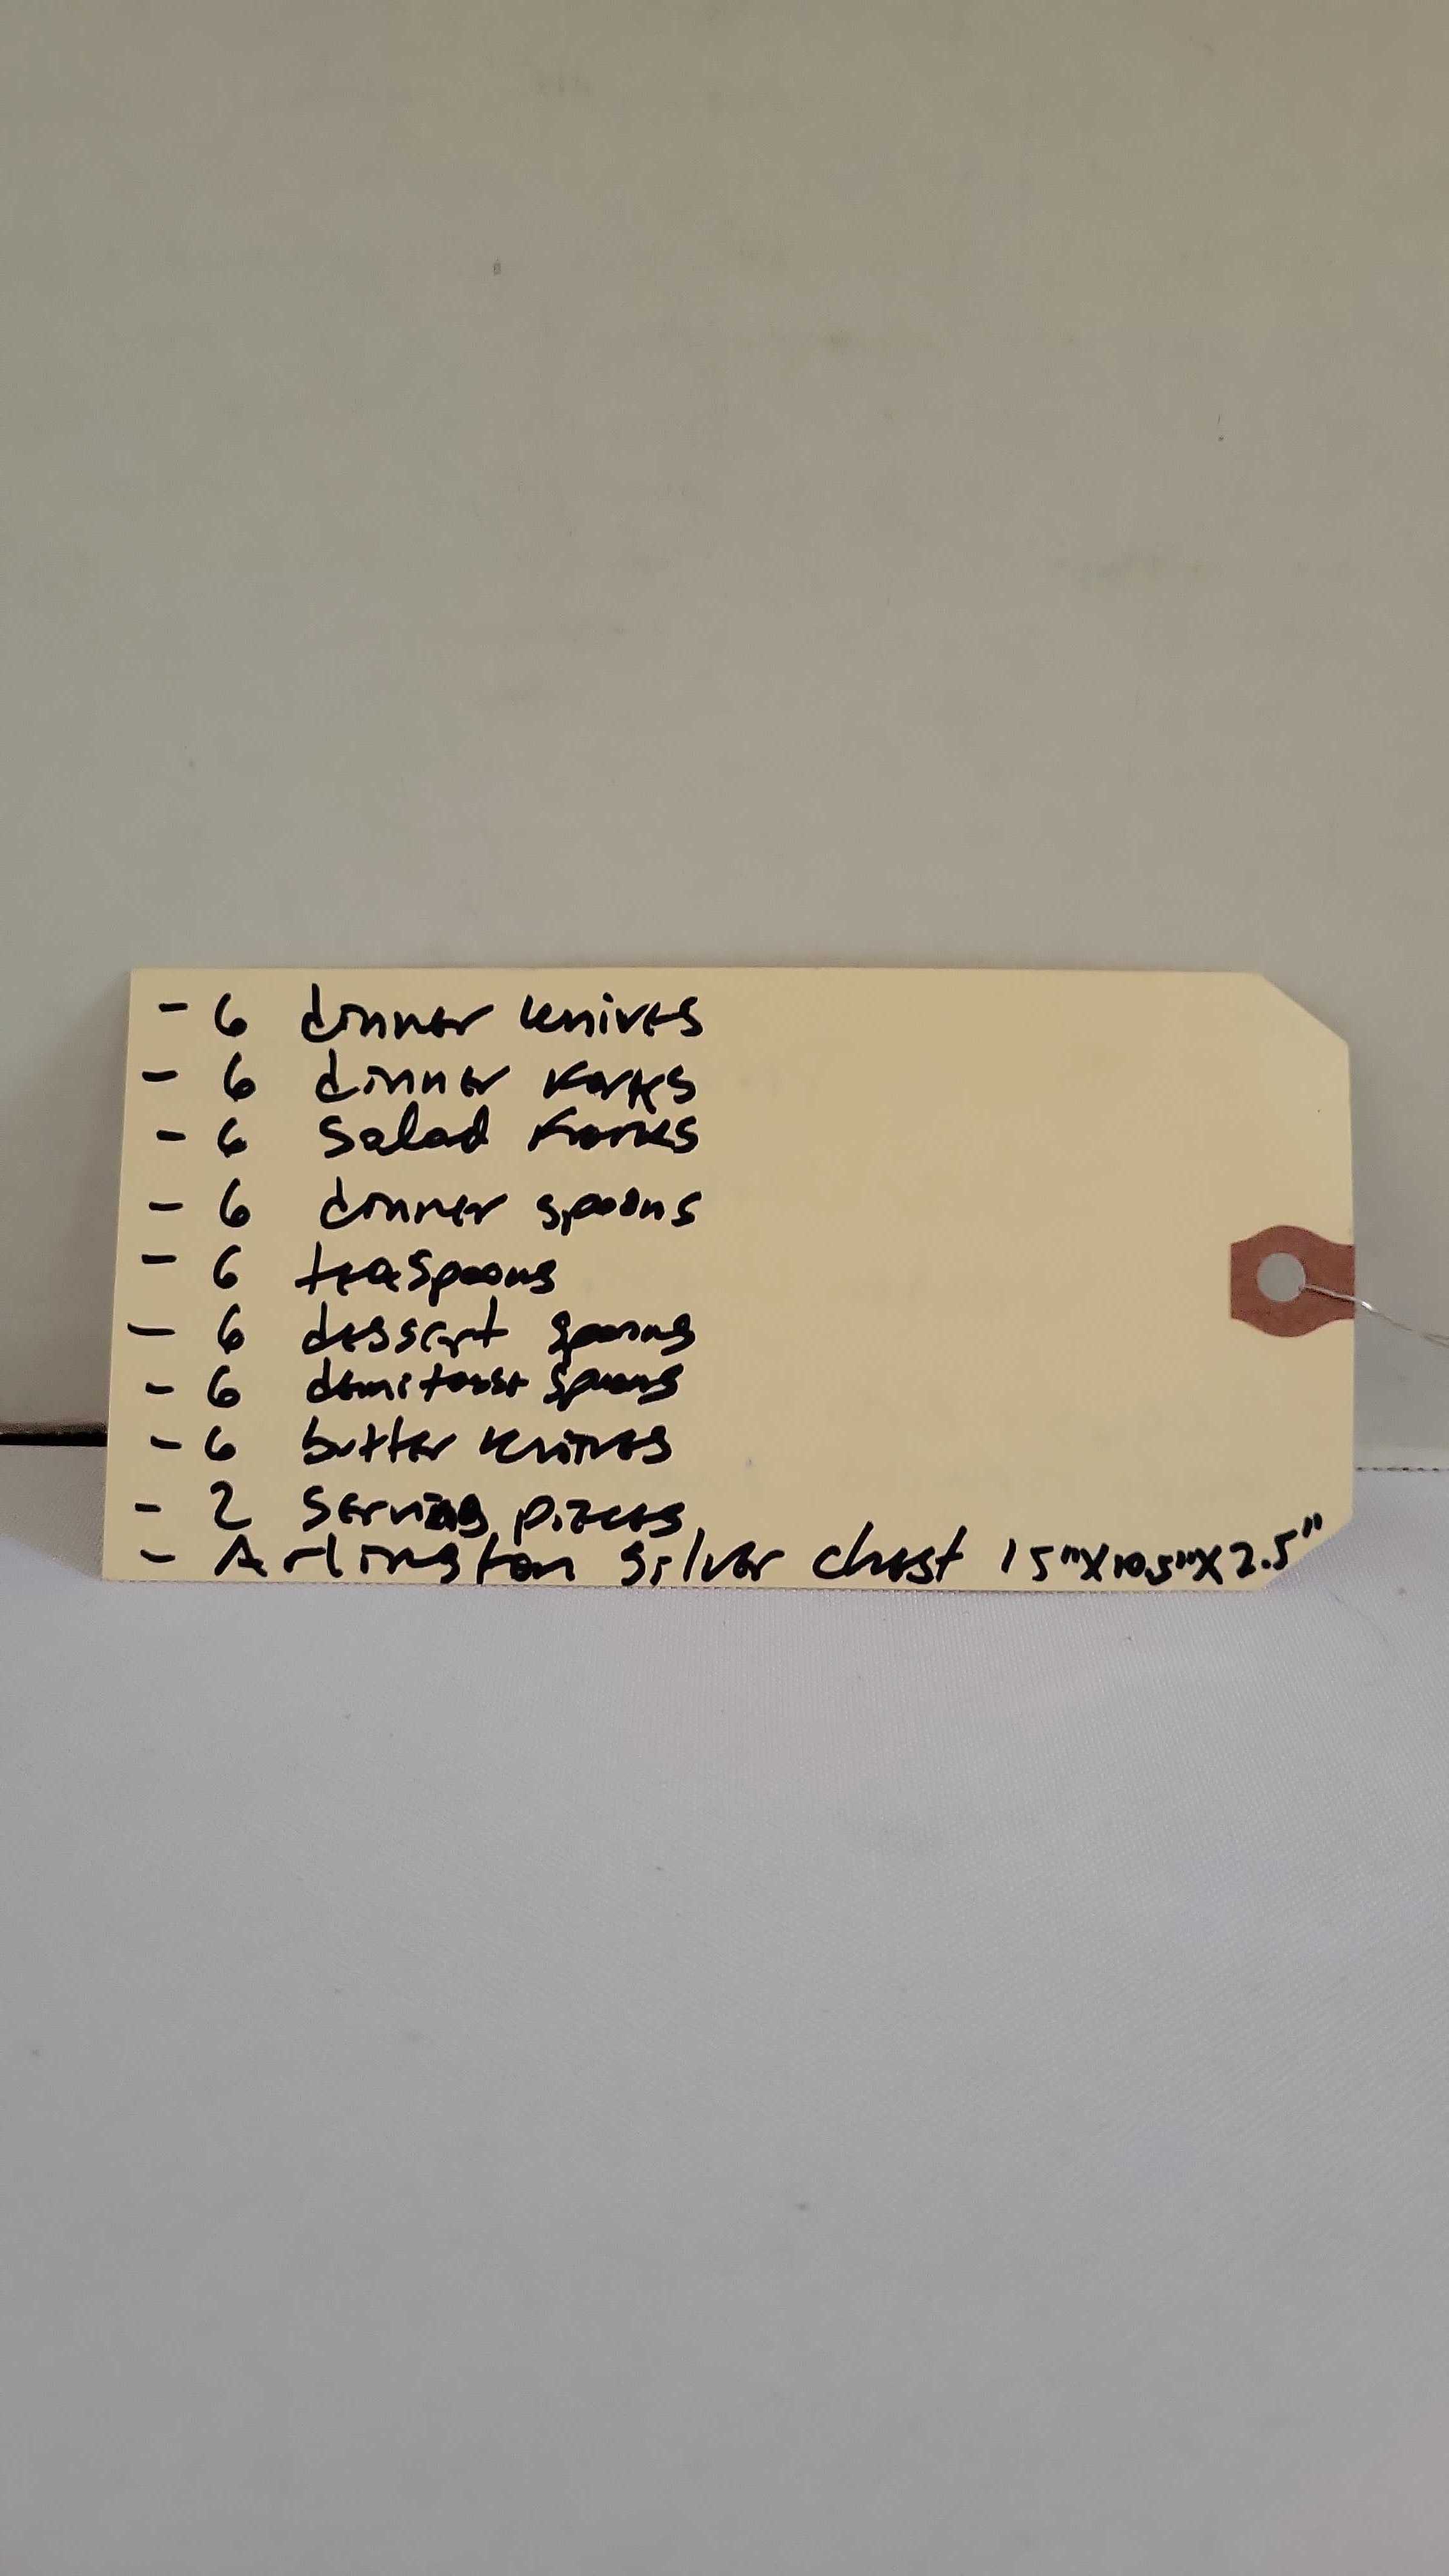 - 6 dinner knives
- 6 dinner forks
- 6 Salad forks
- 6 dinner spoons
- 6 teaspoons
- 6 dessert spoons
- 6 demitasse spoons
- 6 butter knives
- 2 Serving pieces
- Arlington Silver chest 15"X10.5"X2.5"